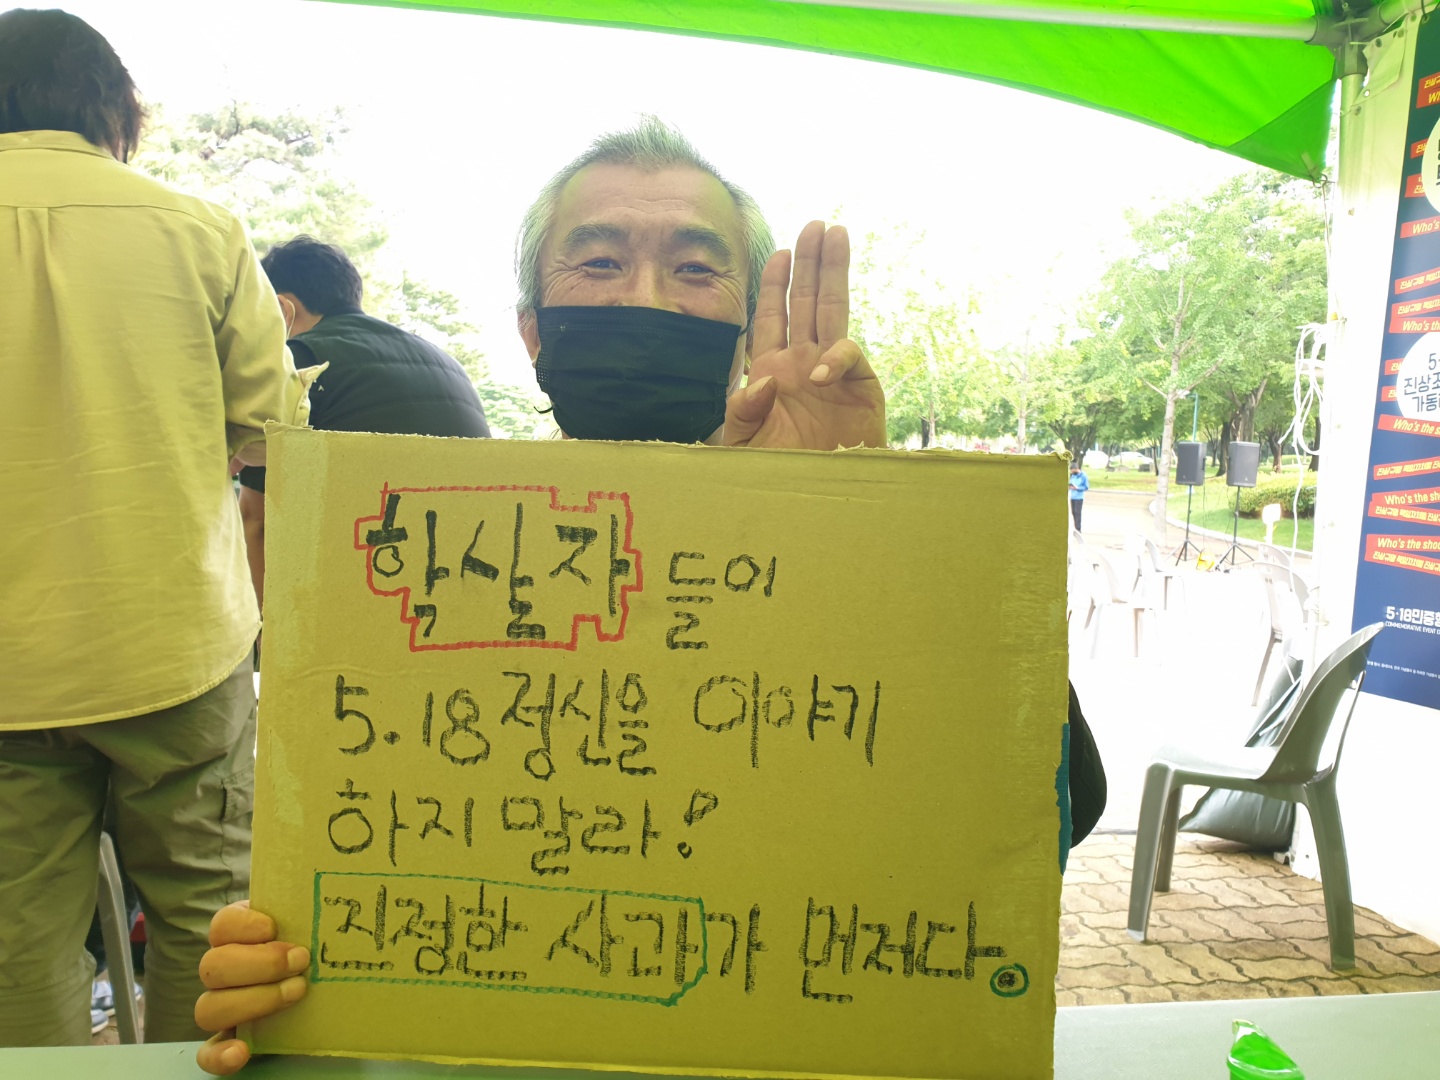 학살자들이
5.18정신을 이야기
하지 말라!
진정한 사과가 먼저다.
Who's
Who's the
Who's the
Who's the
Who's the
5·18민중
COMMEMORATIVE EVENT